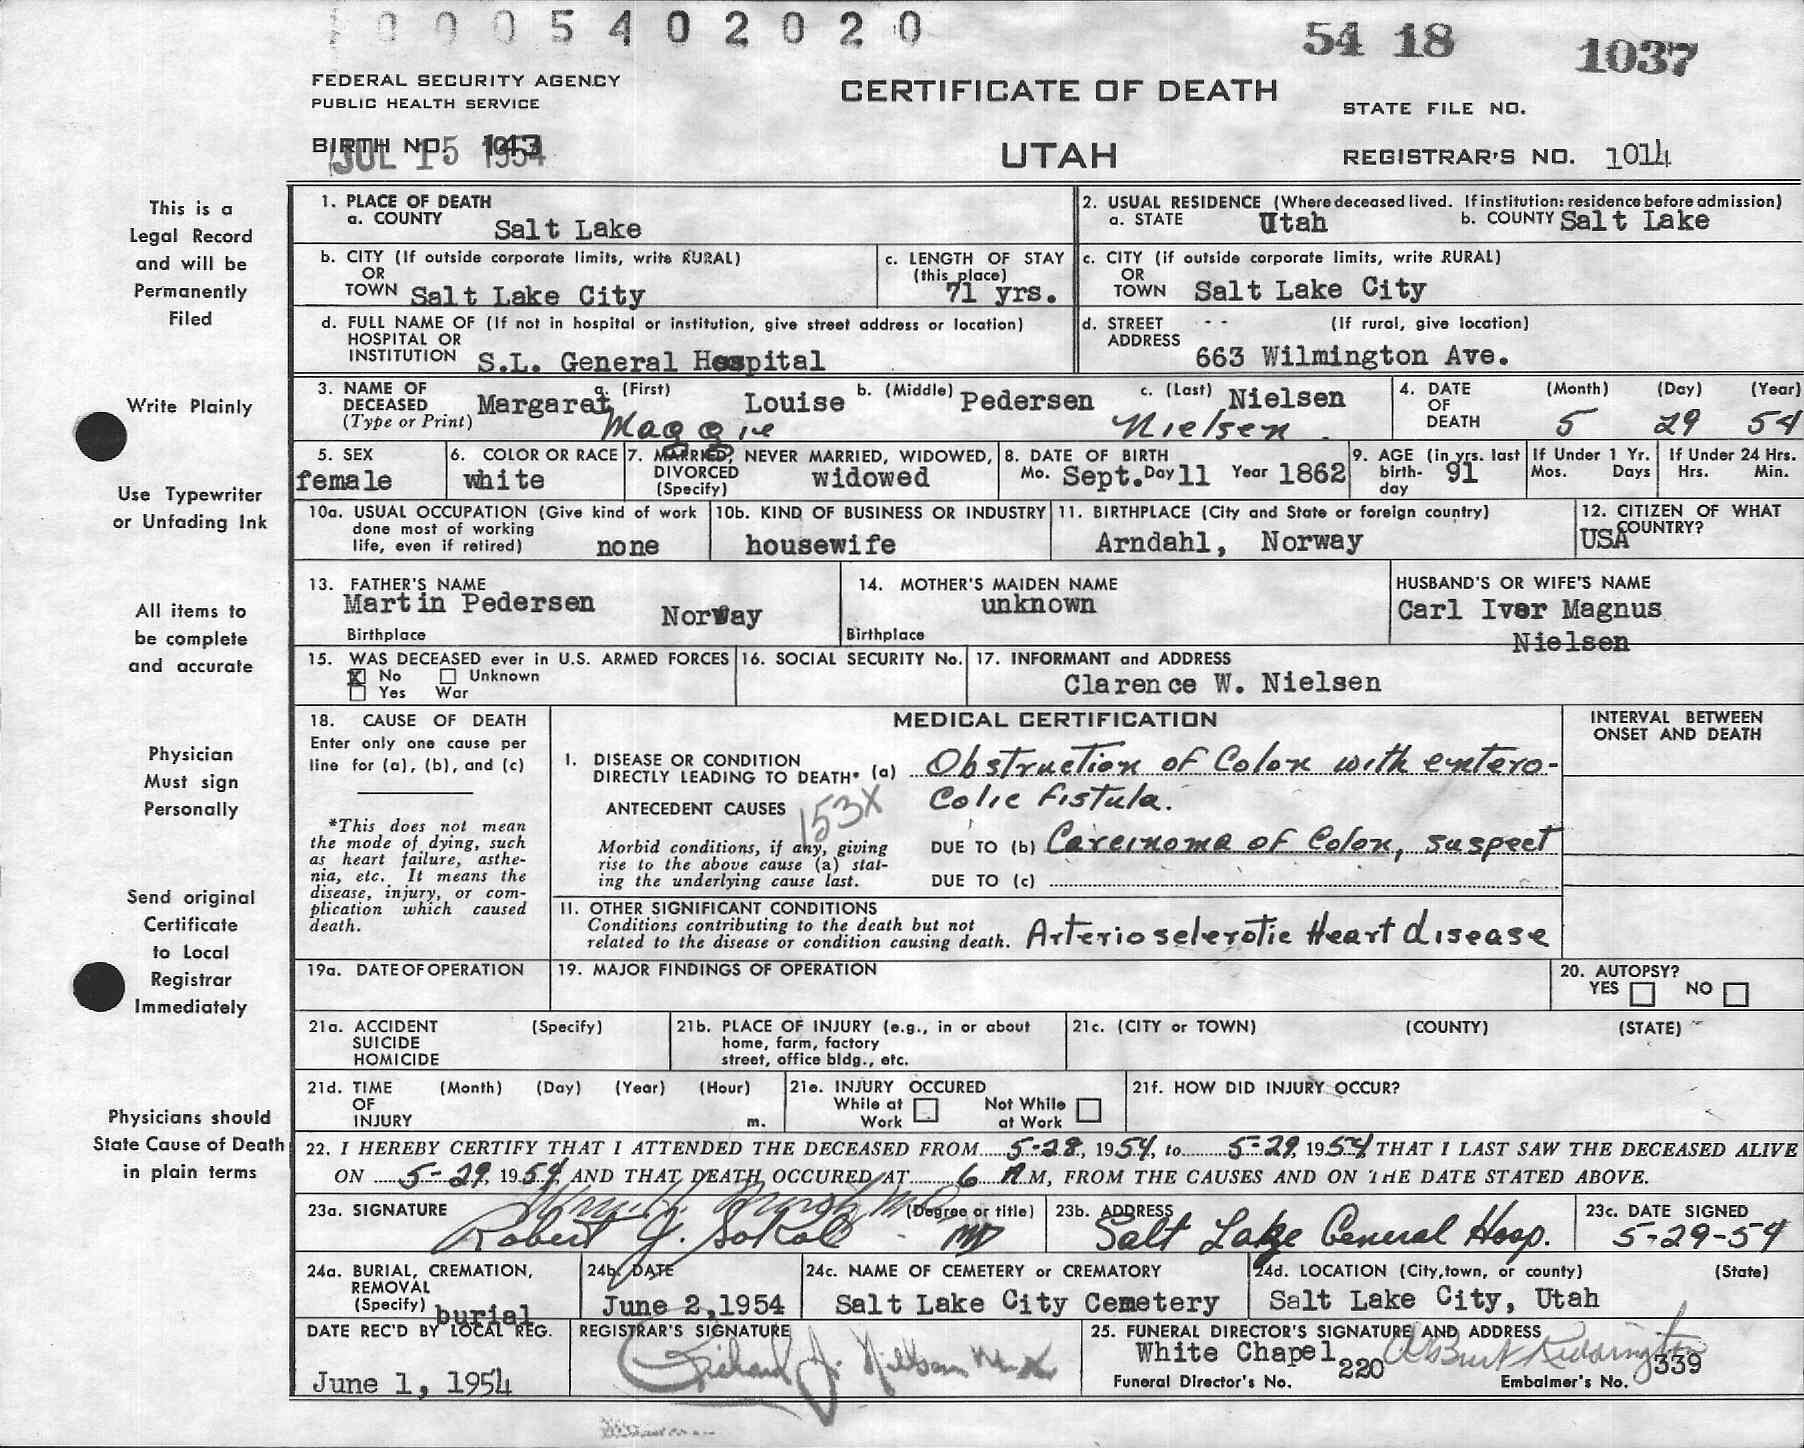 0005402020
54 18 1037
FEDERAL SECURITY AGENCY
PUBLIC HEALTH SERVICE
CERTIFICATE OF DEATH
STATE FILE NO.
BIRTH NO. 143
JUL 15 1954
UTAH
REGISTRAR'S NO. 1014
This is a
Legal Record
and will be
Permanently
Filed
Write Plainly
Use Typewriter
or Unfading Ink
All items to
be complete
and accurate
Physician
Must sign
Personally
Send original
Certificate
to Local
Registrar
Immediately
Physicians should
State Cause of Death
in plain terms
1. PLACE OF DEATH
a. COUNTY Salt Lake
2. USUAL RESIDENCE (Where deceased lived. If institution: residence before admission)
a. STATE Utah b. COUNTY Salt Lake
b. CITY (If outside corporate limits, write RURAL)
OR
TOWN Salt Lake City
c. LENGTH OF STAY
(this place)
71 yrs.
c. CITY (if outside corporate limits, write RURAL)
OR
TOWN Salt Lake City
d. FULL NAME OF (If not in hospital or institution, give street address or location)
HOSPITAL OR
INSTITUTION S.L. General Hospital
d. STREET -- (If rural, give location)
ADDRESS
663 Wilmington Ave.
3. NAME OF a. (First) b. (Middle) c. (Last)
DECEASED Margaret Louise Pedersen Nielsen
(Type or Print) Maggie Nielsen.
4. DATE (Month) (Day) (Year)
OF
DEATH 5 29 54
5. SEX
female
6. COLOR OR RACE
white
7. MARRIED, NEVER MARRIED, WIDOWED,
DIVORCED widowed
(Specify)
8. DATE OF BIRTH
Mo. Sept. Day 11 Year 1862
9. AGE (in yrs. last
birth- 91
day
If Under 1 Yr.
Mos. Days
If Under 24 Hrs.
Hrs. Min.
10a. USUAL OCCUPATION (Give kind of work
done most of working
life, even if retired) none
10b. KIND OF BUSINESS OR INDUSTRY
housewife
11. BIRTHPLACE (City and State or foreign country)
Arndahl, Norway
12. CITIZEN OF WHAT
COUNTRY?
USA
13. FATHER'S NAME
Martin Pedersen Norway
Birthplace
14. MOTHER'S MAIDEN NAME
unknown
Birthplace
HUSBAND'S OR WIFE'S NAME
Carl Iver Magnus
Nielsen
15. WAS DECEASED ever in U.S. ARMED FORCES
X No Unknown
Yes War
16. SOCIAL SECURITY No.
17. INFORMANT and ADDRESS
Clarence W. Nielsen
18. CAUSE OF DEATH
Enter only one cause per
line for (a), (b), and (c)
*This does not mean
the mode of dying, such
as heart failure, asthe-
nia, etc. It means the
disease, injury, or com-
plication which caused
death.
MEDICAL CERTIFICATION
INTERVAL BETWEEN
ONSET AND DEATH
I. DISEASE OR CONDITION
DIRECTLY LEADING TO DEATH* (a) Obstruction of Colon with entero-
Colic Fistula.
ANTECEDENT CAUSES
153X
Morbid conditions, if any, giving
rise to the above cause (a) stat-
ing the underlying cause last.
DUE TO (b) Carcinoma of Colon, suspect
DUE TO (c)
II. OTHER SIGNIFICANT CONDITIONS
Conditions contributing to the death but not
related to the disease or condition causing death. Arteriosclerotic Heart disease
19a. DATE OF OPERATION
19. MAJOR FINDINGS OF OPERATION
20. AUTOPSY?
YES NO
21a. ACCIDENT (Specify)
SUICIDE
HOMICIDE
21b. PLACE OF INJURY (e.g., in or about
home, farm, factory
street, office bldg., etc.
21c. (CITY or TOWN) (COUNTY) (STATE)
21d. TIME (Month) (Day) (Year) (Hour)
OF
INJURY m.
21e. INJURY OCCURED
While at Not While
Work at Work
21f. HOW DID INJURY OCCUR?
22. I HEREBY CERTIFY THAT I ATTENDED THE DECEASED FROM 5-28, 1954, to 5-29, 1954 THAT I LAST SAW THE DECEASED ALIVE
ON 5-29, 1954, AND THAT DEATH OCCURED AT 6 A M, FROM THE CAUSES AND ON THE DATE STATED ABOVE.
23a. SIGNATURE (Degree or title)
Robert J. Sokol MD
23b. ADDRESS
Salt Lake General Hosp.
23c. DATE SIGNED
5-29-54
24a. BURIAL, CREMATION,
REMOVAL
(Specify) burial
24b. DATE
June 2, 1954
24c. NAME OF CEMETERY or CREMATORY
Salt Lake City Cemetery
24d. LOCATION (City, town, or county) (State)
Salt Lake City, Utah
DATE REC'D BY LOCAL REG.
June 1, 1954
REGISTRAR'S SIGNATURE
Richard J.
25. FUNERAL DIRECTOR'S SIGNATURE AND ADDRESS
White Chapel
Funeral Director's No. 220 Embalmer's No. 339